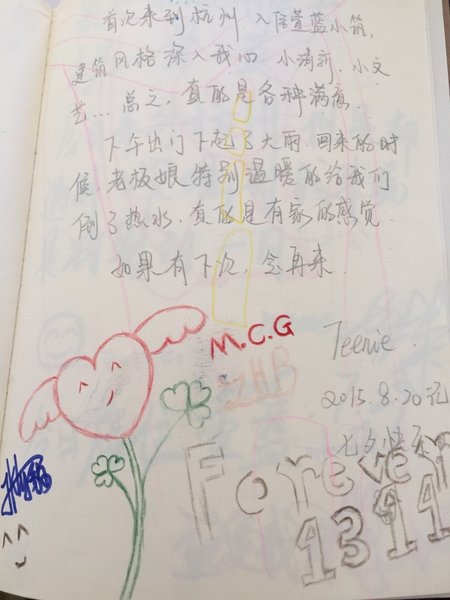 首次来到杭州 入住萱蓝小筑,
建筑风格深入我心 小清新、小文
艺... 总之,真的是各种满意.
下午出门下起了大雨.回来的时
候,老板娘特别温暖的给我们
倒了热水.真的是有家的感觉.
如果有下次,会再来.
M.C.G
Teenie.
ZHB
2015.8.20记
七夕快乐
Forever
1314